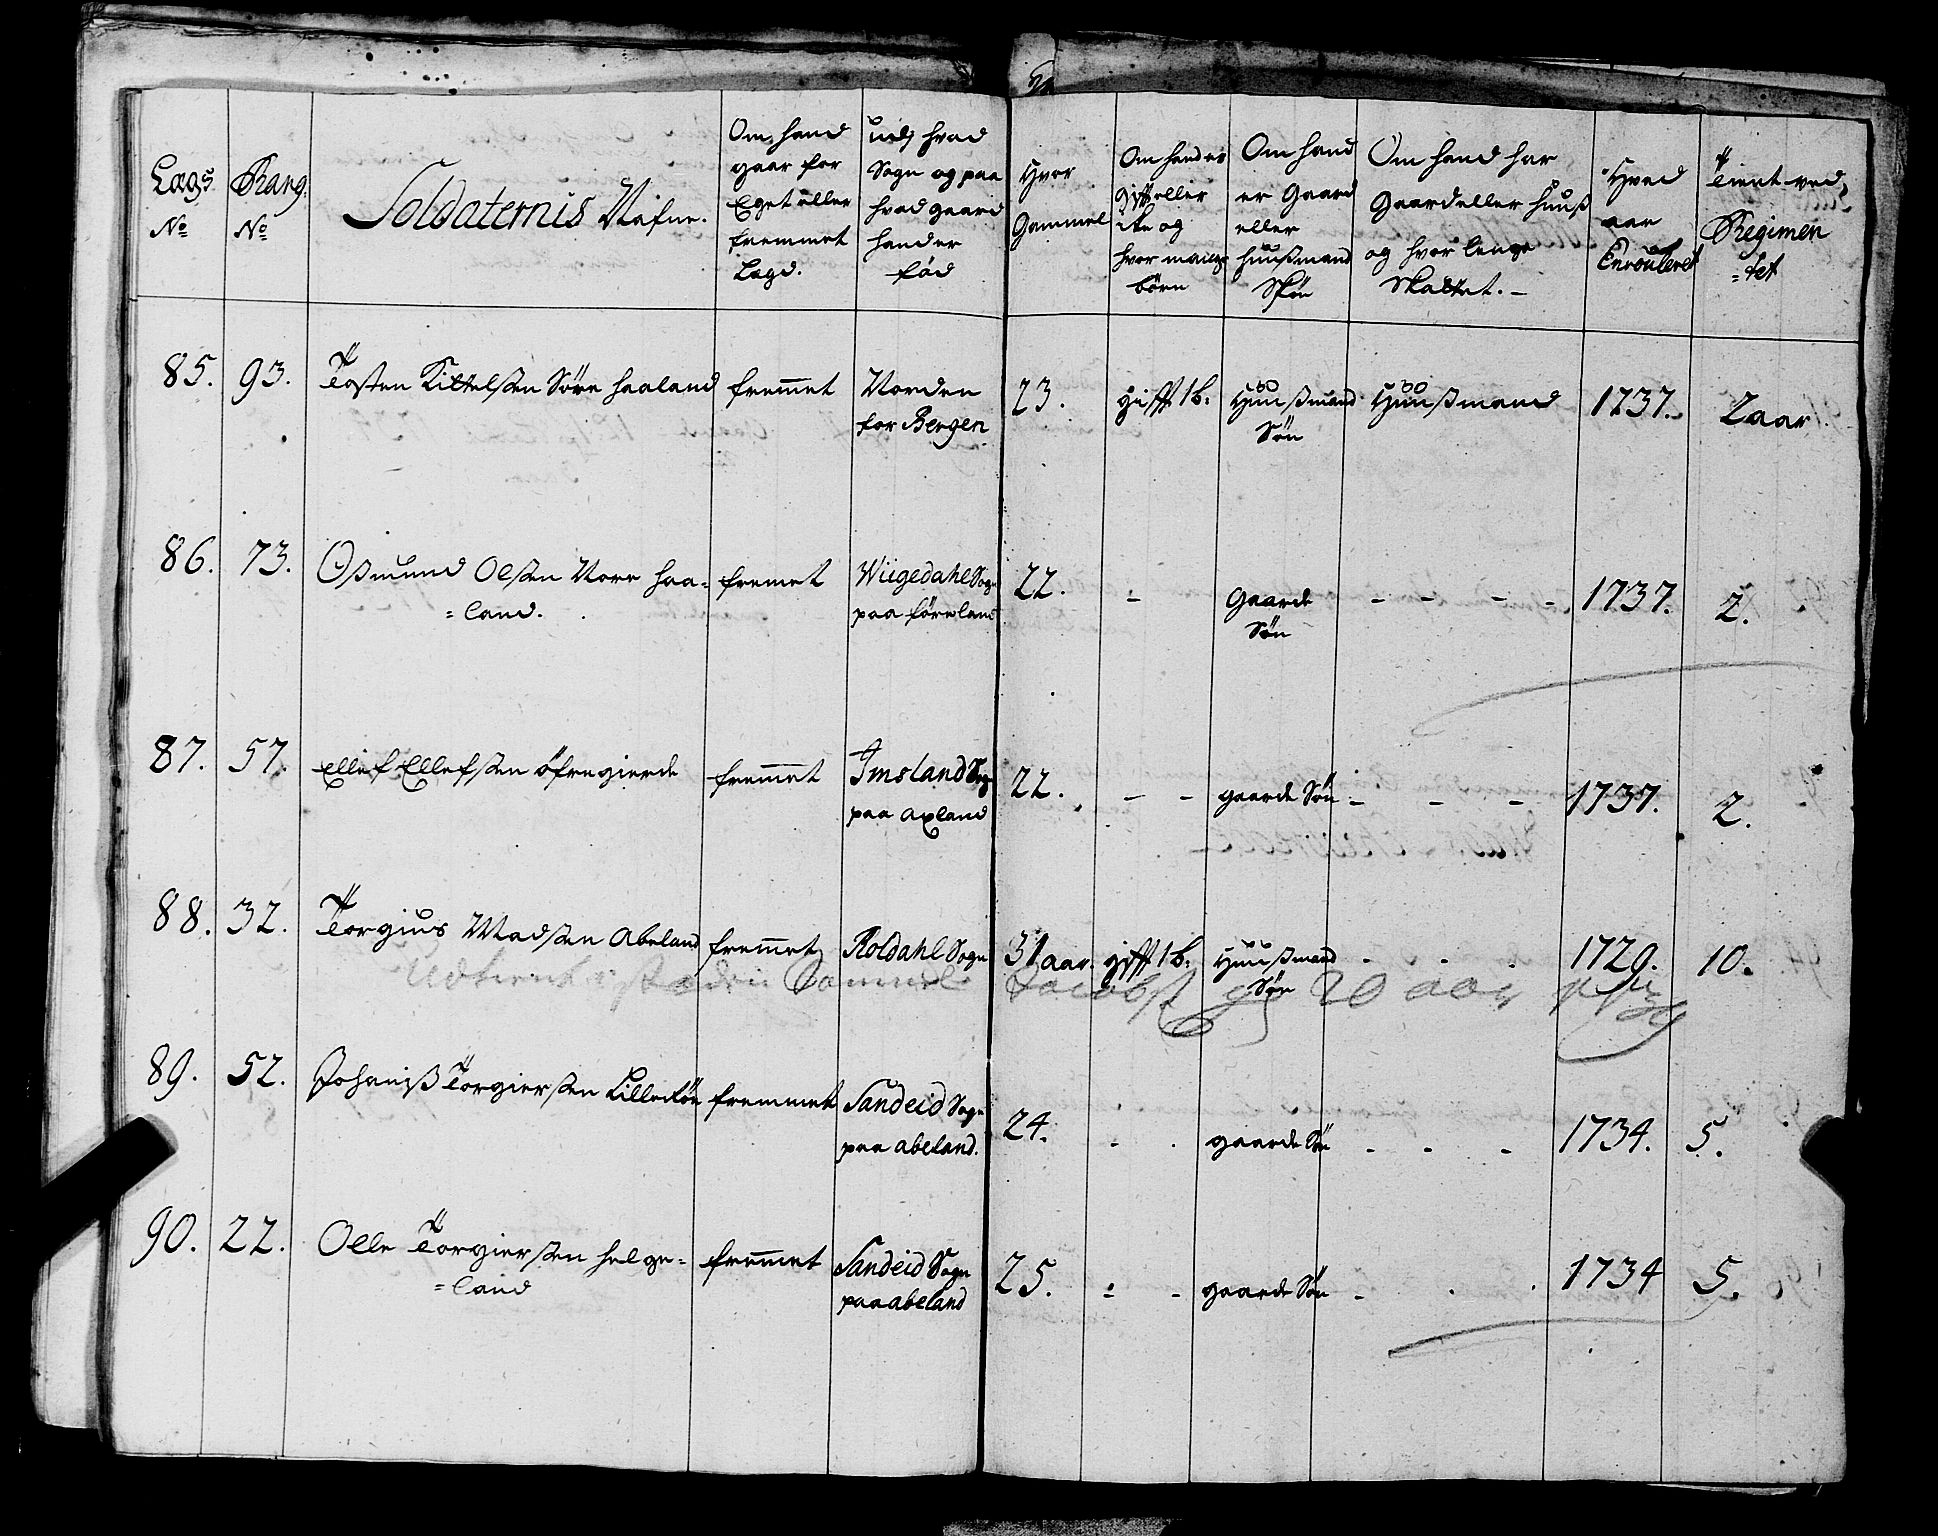 Lags No
Rang No
Soldaternis Nafne.
Om hand gaar for Eget eller fremmet Lægd.
udj hvad Sogn og paa hvad gaard hand er fød
Hvor Gammel
Om hand er gift eller ikke og hvor mange børn
Om hand er Gaard eller Huusmand Søn
Om hand har Gaard eller Huuß og hvor lenge Skattet.
Hvad aar Enroulleret
Tient ved Regimen=tet
85. 93. Tosten Kittelsen Søre Haaland fremmet Norden for Bergen 23. gift 1 b: Huußmand Søn Huußmand 1737. 2 aar
86. 73. Osmund Olsen Nore Haa=
=land. fremmet Wiigedahl Sogn paa Føreland 22. - Gaarde Søn - - - - 1737. 2.
87. 57. Ellef Ellefsen Øfregierde fremmet Imsland Sogn paa Axland 22. - - gaarde Søn - - - 1737. 2.
88. 32. Torgius Madsen Abeland fremmet Roldahl Sogn 31 aar. gift 1 b: Huußmand Søn - - - 1729. 10.
Udtient i Steden Samuel Jacobs: 20 aar
89. 52. Johaniß Torgiersen Lilledøe fremmet Sandeid Sogn paa abeland. 24. - - gaarde Søn - - - 1734. 5.
90. 22. Olle Torgiersen Helge=
=land fremmet Sandeid Sogn paa abeland 25. - - gaarde Søn - - - 1734 5.